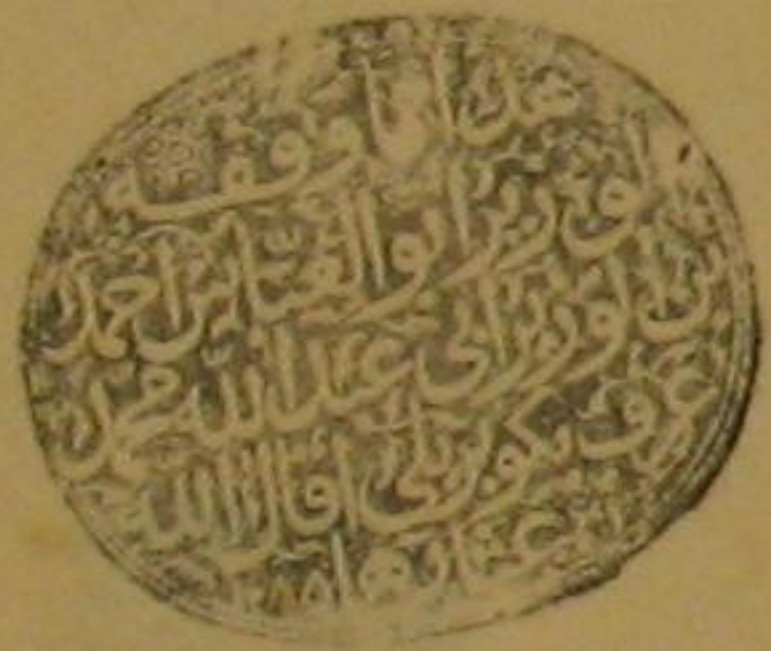 هذا ما وقفه
الوزير ابو العباس احمد
بن الوزير ابى عبد الله محمد
عرف بكوپريلى اقال الله
عثارهما